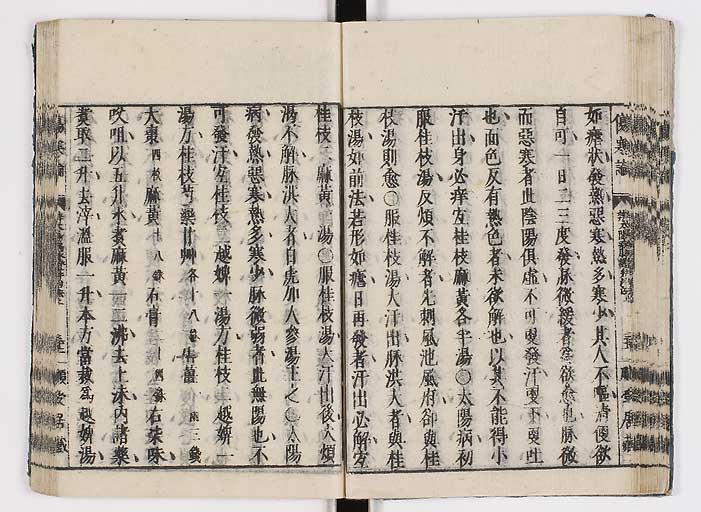 如瘧狀發熱惡寒熱多寒少其人不嘔清便欲
自可一日二三度發脉微緩者爲欲愈也脉微
而惡寒者此陰陽俱虛不可更發汗更下更吐
也面色反有熱色者未欲解也以其不能得小
汗出身必痒宜桂枝麻黃各半湯〇太陽病初
服桂枝湯反煩不解者先刺風池風府卻與桂
枝湯則愈〇服桂枝湯大汗出脉洪大者與桂
枝湯如前法若形如瘧日再發者汗出必解宜
桂枝二麻黃一湯〇服桂枝湯大汗出後大煩
渴不解脉洪大者白虎加人參湯主之〇太陽
病發熱惡寒熱多寒少脉微弱者此無陽也不
可發汗宜桂枝二越婢一湯方桂枝二越婢一
湯方桂枝芍藥甘艸各十八銖生薑一兩三錢
大棗四枚麻黃十八銖石膏二十四銖右七味
㕮咀以五升水煮麻黃一二沸去上沫內諸藥
煮取二升去滓溫服一升本方當裁爲越婢湯
傷寒論